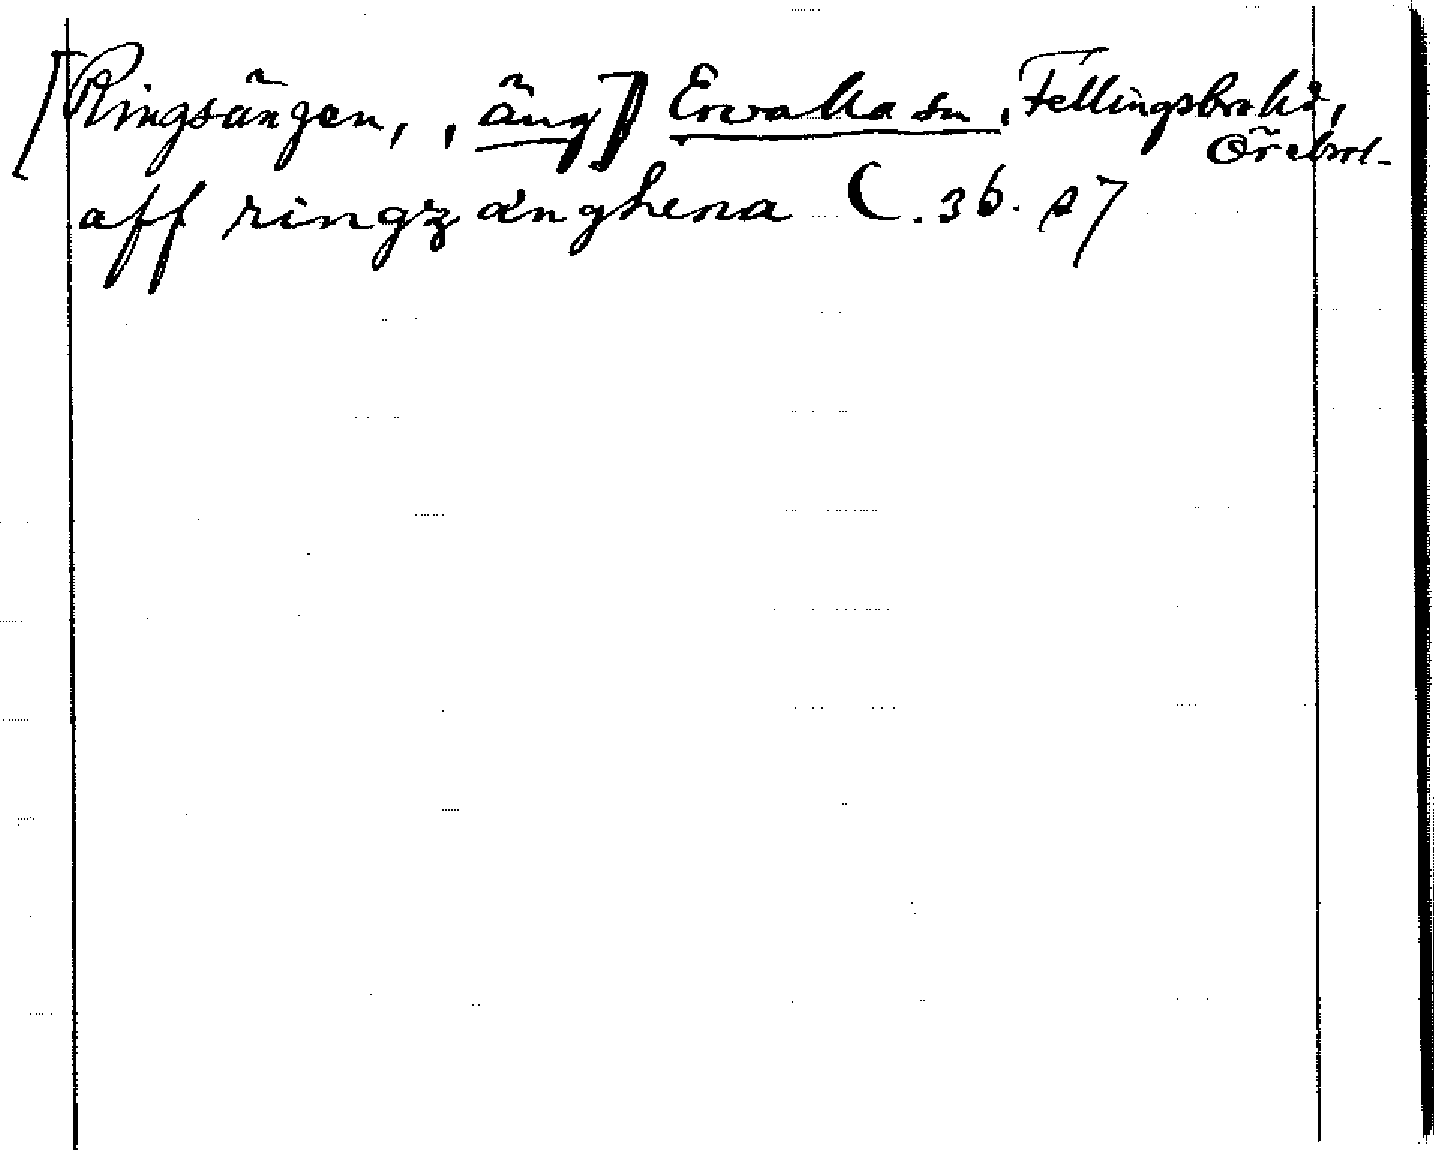 [Ringsängen, , äng] Ervalla sn, Fellingsbro hd,
Örebro l-
aff ringzænghena C. 36. s 7